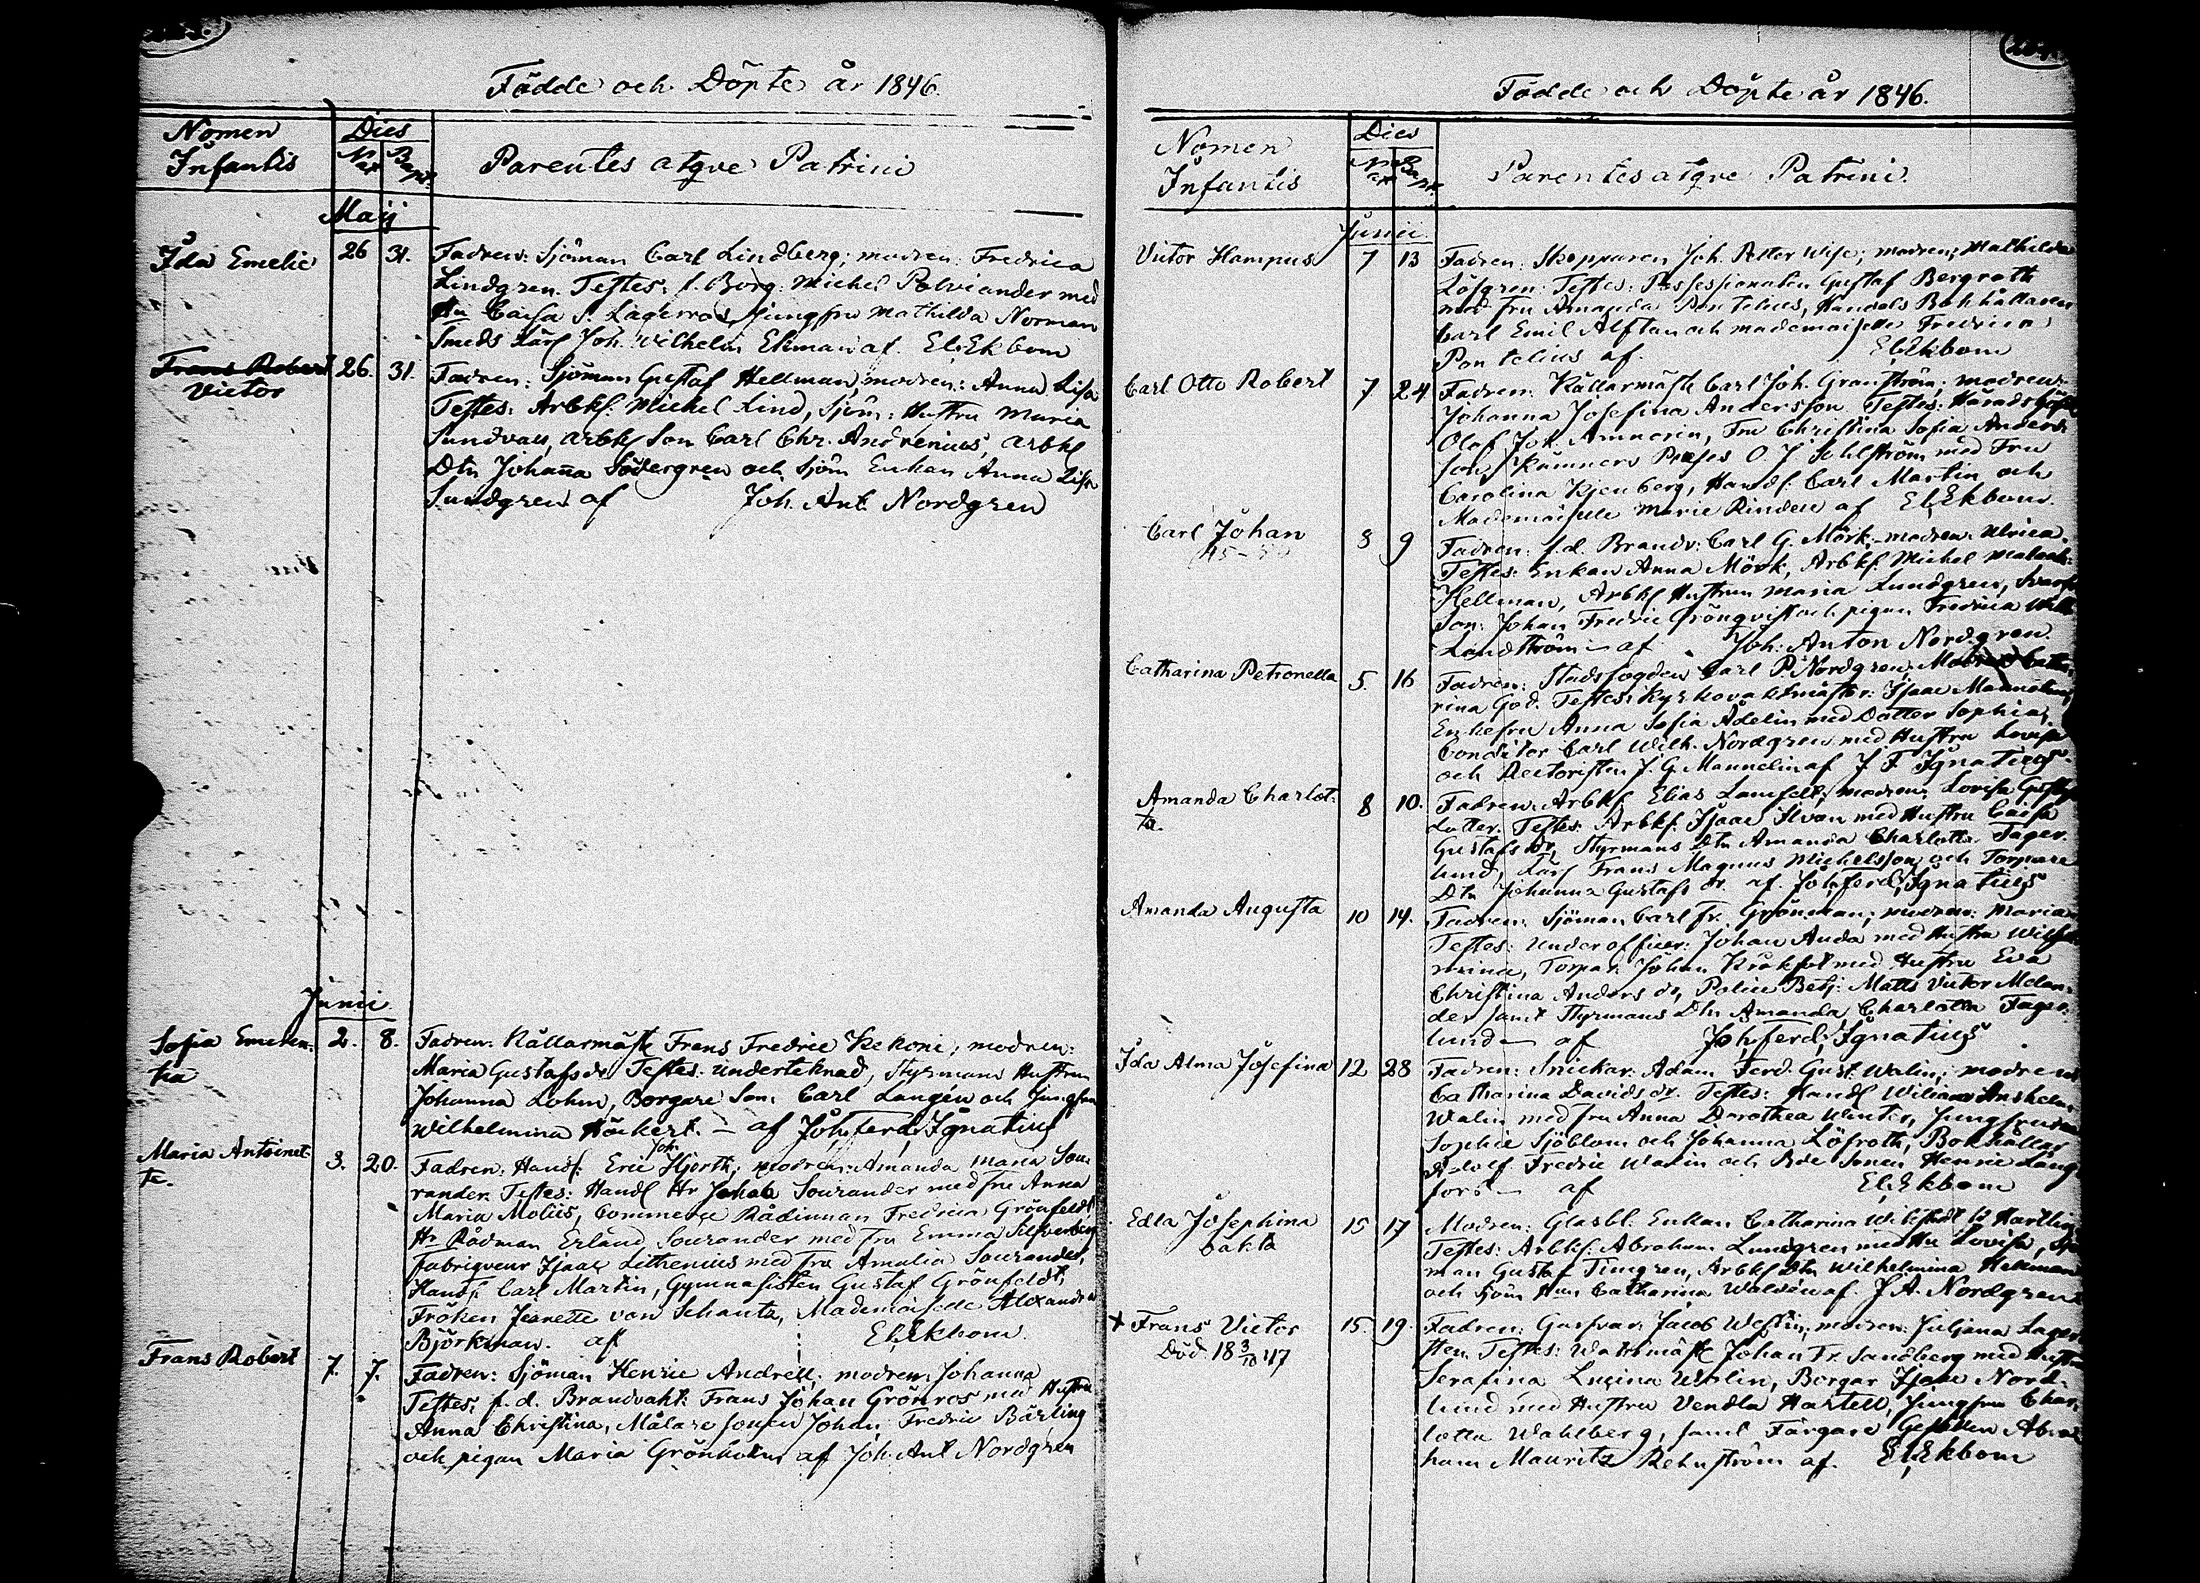 Födde och Döpte år 1846.
Nomen Infantis
Dies
Nat. Bapt.
Parentes atqve Patrini
Maij
Ida Emelie 26 31. Fadren: Sjöman Carl Lindberg; modren: Fredrica
Lindgren. Testes: f. Borg: Michel Polviander med
Hu Caisa S. Lagerros, jungfru Mathilda Norman
Smeds Lärl Joh. Wilhelm Ekman af El. Ekbom
Frans Robert Victor 26. 31. Fadren: Sjöman Gustaf Hellman, modren: Anna Lisa
Testes: Arbkl. Michel Lind, Sjöm: Hustru Maria
Sundvall, Arbkl Son Carl Chr. Andrenius, Arbkl
Dtr Johanna Södergren och Sjöm Enkan Anna Lisa
Sundgren af Joh. Ant. Nordgren
Junii
Sofia Emeren-
tia 2. 8. Fadren: Källarmäst Frans Fredric Kekoni; modren:
Maria Gustafs dr. Testes: underteknad, Styrmans Hustrun
Johanna Lohm, Borgare Son: Carl Langén och Jungfru
Wilhelmina Höckert. – af Joh. Ferd. Ignatius
Maria Antoinet-
te. 3. 20. Fadren: Handl: Eric Joh. Hjorth; modren: Amanda Maria Sou-
rander. Testes: Handl Hr Johab Sourander med fru Anna
Maria Molüs, Commerce Rådinnan Fredrica Grönfeldt,
Hr Rådman Erland Sourander med Fru Emma Silfverberg
Fabriqveur Isaac Lithenius med fru Amalia Sourander,
Handl: Carl Martin, Gymnasisten Gustaf Grönfeldt,
Fröken Jeanette von Schantz, Mademoiselle Alexandra
Björkman. af El. Ekbom.
Frans Robert 7. 7. Fadren: Sjöman Henric Andrell; modren: Johanna
Testes: f. d. Brandvakt: Frans Johan Grönros med Hustru
Anna Christina, Målare sonen Johan Fredric Bärling
och pigan Maria Grönholm af Joh. Ant Nordgren
Födde och Döpte år 1846.
Nomen Infantis
Dies
Nat. Bapt.
Parentes atqve Patrini.
Junii.
Victor Hampus 7 13 Fadren: Skepparen Joh. Petter Wise; modren: Mathilda
Löfgren. Testes: Possessionaten Gustaf Bergroth
med fru Amanda Pontelius, Handels Bokhållaren
Carl Emil Alftan och mademoiselle Fredrica
Pontelius af. El. Ekbom
Carl Otto Robert 7 24 Fadren: Källarmäst Carl Joh. Granström; modren:
Johanna Josefina Andersson. Testes: Härads
Olof Joh. Amnorin, Fru Christina Sofia Anders-
son, Kämners Præses O J Sehlström med Fru
Carolina Kjenberg, Handl. Carl Martin och
Mademoiselle Marie Rindell af El. Ekbom.
Carl Johan 8 9 Fadren: f.d. Brandv: Carl G. Mörk; modren: Ulrica.
Testes: Enkan Anna Mörk, Arbkl. Michel
Hellman, Arbkl Hustrun Maria Lundgren, Svarf
Son: Johan Fredric Grönqvist och pigan Fredrica
Lindström – af Joh: Anton Nordgren.
Catharina Petronella 5. 16 Fadren: Stadsfogden Carl P. Nordgren; Modren Catha-
rina God. Testes: Kyrkovaktmäster: Isaac Mannelin,
Enkefru Anna Sofia Ådelin med Dotter Sophia,
Conditor Carl Wilh. Nordgren med Hustru Lovisa
och Rectoristen J. G. Mannelin af J. F. Ignatius.
Amanda Charlot-
ta. 8 10. Fadren: Arbkl. Elias Lamfelt; modren: Lovisa Gustafs
dotter. Testes: Arbkl. Isaac Ilvan med Hustru Caisa
Gustafs dr, Styrmans Dtr Amanda Charlotta Fager-
lund, Lärl Frans Magnus Michelsson och Torpare
Dtr Johanna Gustafs dr. af. Joh. Ferd. Ignatius
Amanda Augusta 10 14. Fadren: Sjöman Carl Fr. Grönman; modren: Maria
Testes: Underofficer: Johan Anda med Hustru Wilhel-
mina, Torpar: Johan Kråkfot med Hustru Eva
Christina Anders dr, Police Betj: Matts Victor Melan-
der samt Styrmans Dtr Amanda Charlotta Fager-
lund – af Joh. Ferd. Ignatius
Ida Alma Josefina 12 28 Fadren: Snickar: Adam Ferd: Gust: Walin; modren
Catharina Davids dr. Testes: Handl Wiliam Anshelm
Walin med fru Anna Dorothea Winter, Jungfrurna
Sophie Sjöblom och Johanna Löfroth, Bokhållar
Adolf Fredric Walin och Bde Sonen Henric Lång-
fors – af El. Ekbom
Edla Josephina
oäkta 15 17 Modren: Glasbl: Enkan Catharina
Testes: Arbkl. Abraham Lundgren med Hu Lovisa, Sjö-
man Gustaf Timgren, Arbkl Dtr Wilhelmina Hellman
och Sjöm Hun Catharina Waldén af. J A. Nordgren
+ Frans Victor
Död 18 3/10 47 15. 19. Fadren: Garfvar: Jacob Westin, modren: Juljana Lager-
sten. Testes: Waktmäst Johan Fr. Sandberg med Hustru
Serafina Lucina Wirlin, Borgar Isaac Nord-
lund med Hustru Vendla Hartell, Jungfru Char-
lotta Wahlberg, samt Färgare Gesällen Abra-
ham Mauritz Rehnström af. El. Ekbom